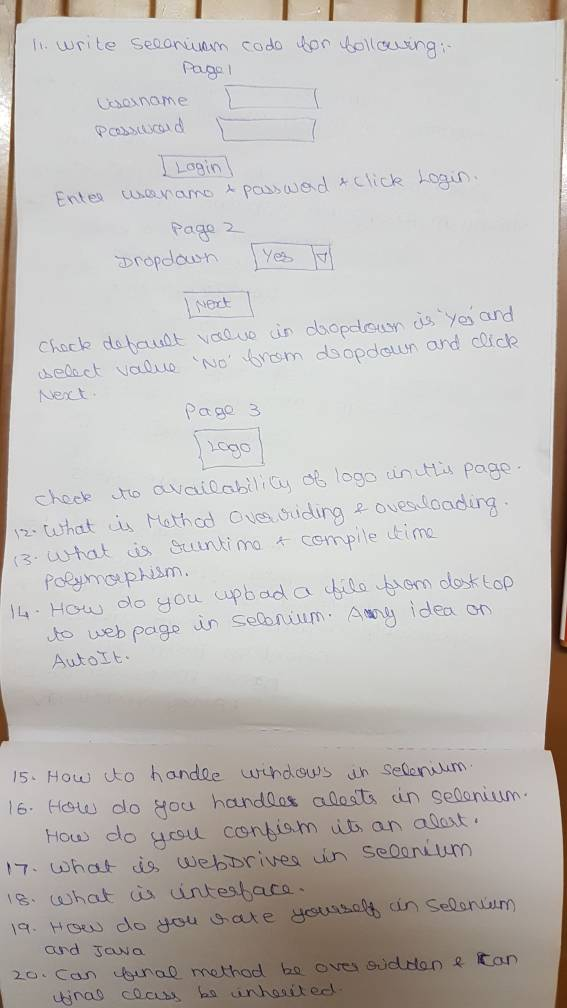 11. Write Selenium code for following:-
Page 1
Username
Password
Login
Enter username & password & click Login.
Page 2
Dropdown Yes
Next
Check default value in dropdown is 'Yes' and
select value 'No' from dropdown and click
Next.
Page 3
Logo
Check to availability of logo in this page.
12. What is Method Overriding & overloading.
13. What is runtime & compile time
Polymorphism.
14. How do you upload a file from desktop
to web page in Selenium. Any idea on
AutoIt.
15. How to handle windows in selenium.
16. How do you handle alerts in selenium.
How do you confirm its an alert.
17. What is WebDriver in Selenium
18. What is interface.
19. How do you rate yourself in Selenium
and Java
20. Can final method be overridden & Can
final class be inherited.